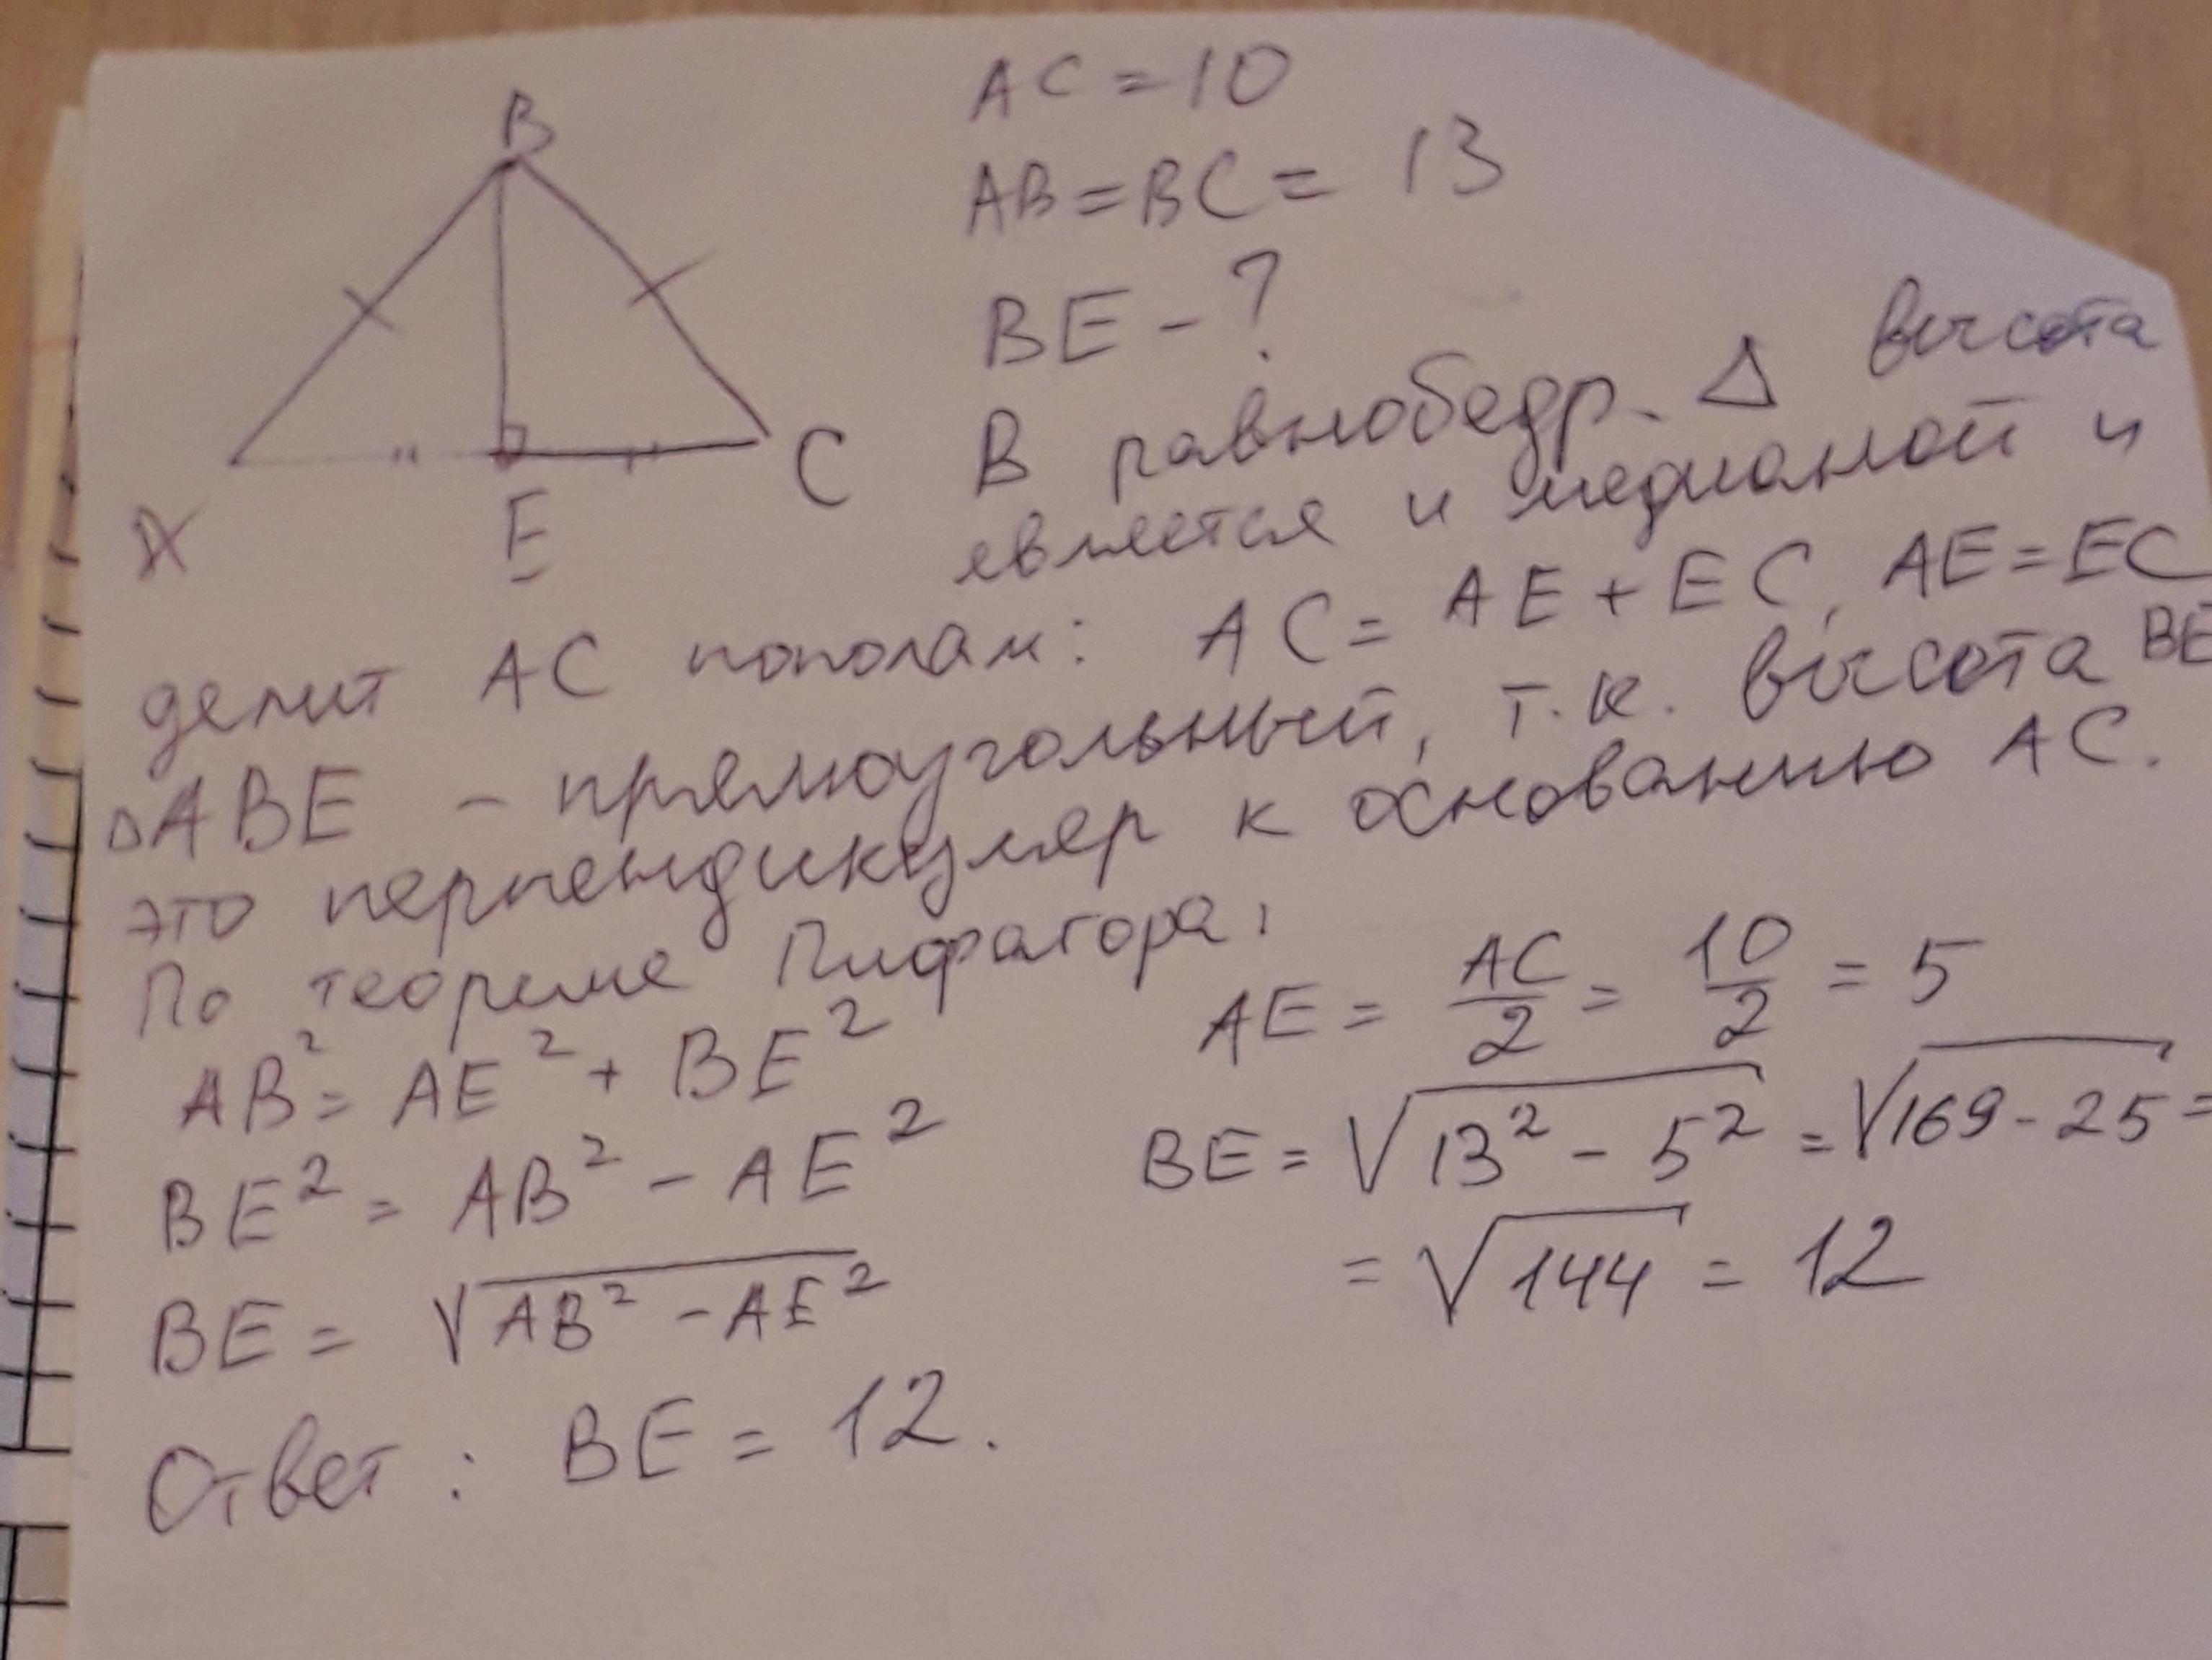 B
A
E
C
AC = 10
AB = BC = 13
BE - ?
В равнобедр. Δ высота
является и медианой и
делит AC пополам: AC = AE + EC, AE = EC
ΔABE - прямоугольный, т.к. высота BE
это перпендикуляр к основанию AC.
По теореме Пифагора,
AB² = AE² + BE²
BE² = AB² - AE²
BE = √AB² - AE²
AE = AC/2 = 10/2 = 5
BE = √13² - 5² = √169 - 25 =
= √144 = 12
Ответ: BE = 12.